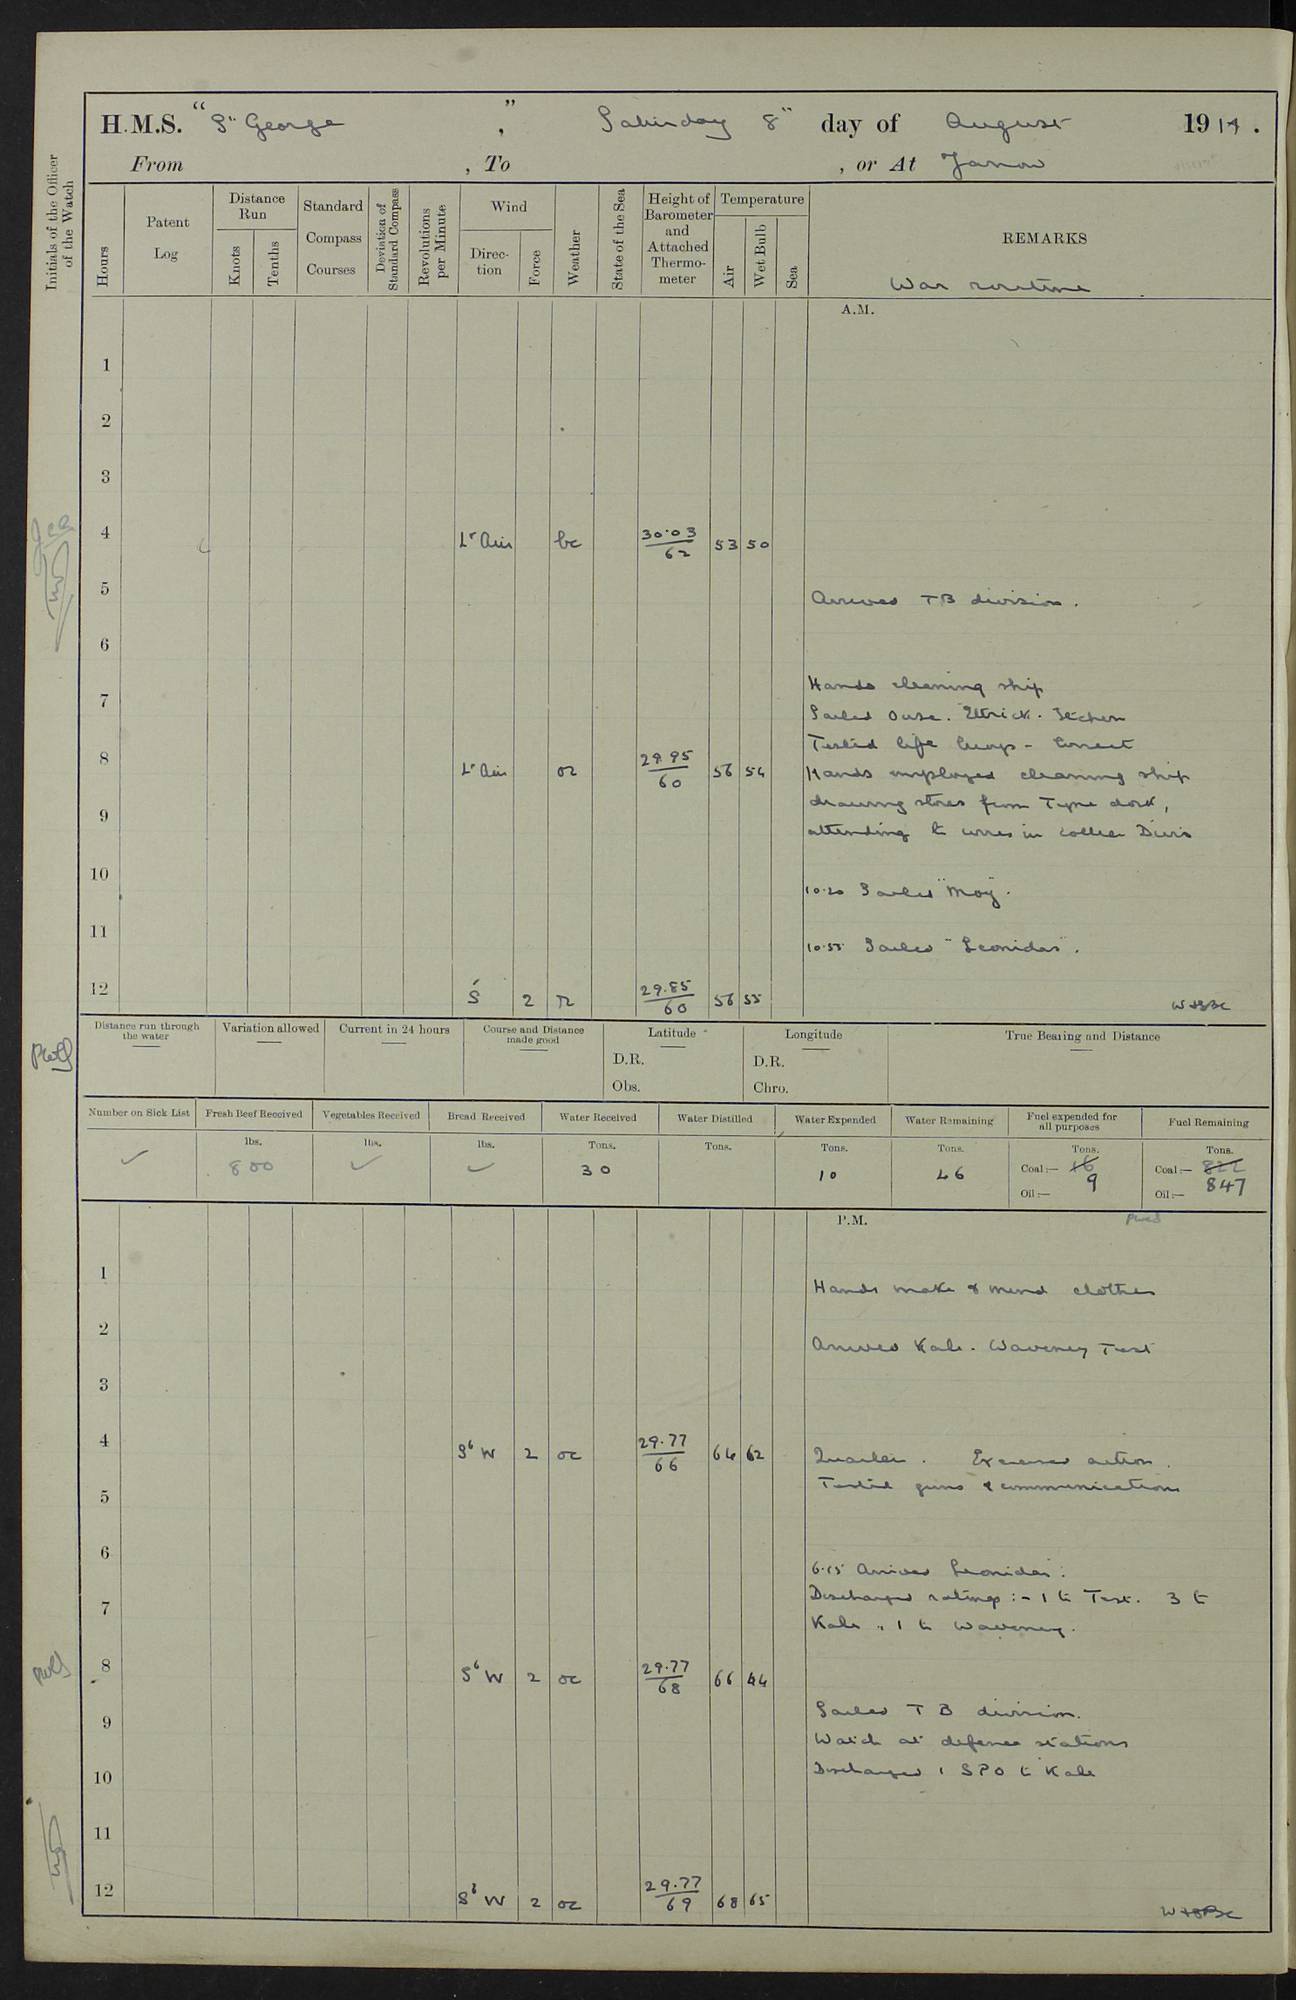 H.M.S. "St George", Saturday 8th day of August 1914.
From , To , or At Jarrow
Initials of the Officer of the Watch
Hours
Patent Log
Distance Run
Knots
Tenths
Standard Compass Courses
Deviation of Standard Compass
Revolutions per Minute
Wind
Direction
Force
Weather
State of the Sea
Height of Barometer and Attached Thermometer
Temperature
Air
Wet Bulb
Sea
REMARKS
War routine
A.M.
1
2
3
4 Lt Airs bc 30.03/62 53 50
5
Arrived TB division.
6
Hands cleaning ship
7
Sailed Ouse. Ettrick. Itchen
Tested life buoys - Correct
8 Lt Airs or 29.95/60 56 54
Hands employed cleaning ship
drawing stores from Tyne dock,
9
attending to wires in collier
10
10.20 Sailed "Moy".
11
10.55 Sailed "Leonidas".
12 S 2 r 29.85/60 56 55
Distance run through the water
Variation allowed
Current in 24 hours
Course and Distance made good
Latitude
D.R.
Obs.
Longitude
D.R.
Chro.
True Bearing and Distance
Number on Sick List
Fresh Beef Received
Vegetables Received
Bread Received
Water Received
Water Distilled
Water Expended
Water Remaining
Fuel expended for all purposes
Fuel Remaining
lbs. lbs. lbs. Tons. Tons. Tons. Tons. Tons. Tons.
✓ 800 ✓ ✓ 30 10 46 Coal:— 16 Coal:— 822
Oil:— 9 Oil:— 847
P.M.
1
Hands make & mend clothes
2
Arrived Kale. Waveney Test
3
4 SbW 2 oc 29.77/66 64 62 Quarters. Exercised action.
Tested guns & communications
5
6
6.15 Arrived Leonidas.
Discharged ratings:- 1 to Test. 3 to
7
Kale, 1 to Waveney.
8 SbW 2 oc 29.77/68 66 44
Sailed T B division.
9
Watch at defence stations
10
Discharged 1 SPO to Kale
11
12 SbW 2 oc 29.77/69 68 65